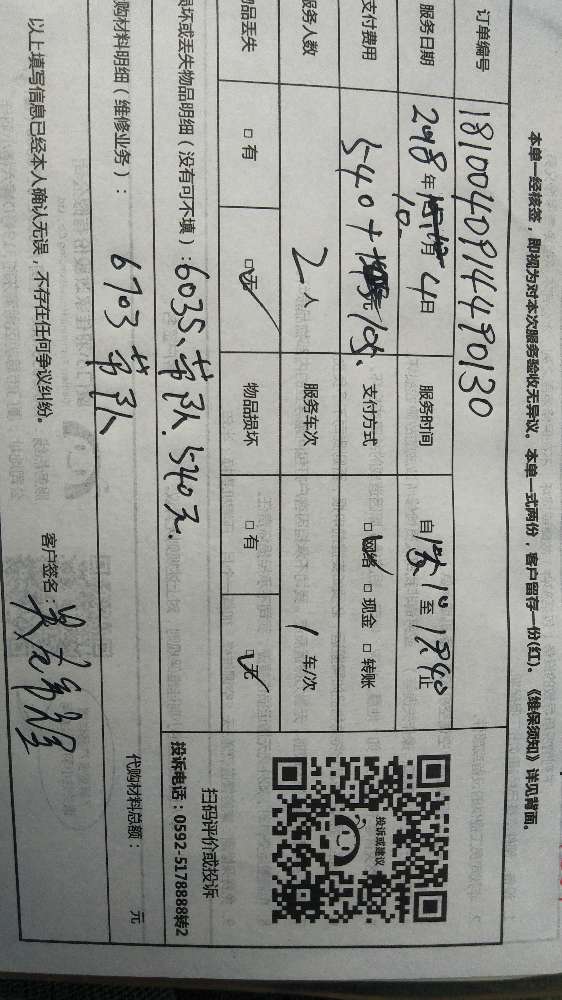 本单一经核签，即视为对本次服务验收无异议。本单一式两份，客户留存一份(红)。《维保须知》详见背面。
订单编号 1810040914490130
服务日期 2018年10月4日 服务时间 自 至 18:40止
支付费用 540+105. 支付方式 □网络 □现金 □转账
服务人数 2人 服务车次 1车/次
物品丢失 □有 □无 物品损坏 □有 □无
损坏或丢失物品明细（没有可不填）：6035、劳队.540元.
购材料明细（维修业务）：6703 劳队
代购材料总额： 元
以上填写信息已经本人确认无误，不存在任何争议纠纷。
客户签名：
投诉或建议
扫码评价或投诉
投诉电话：0592-5178888转2